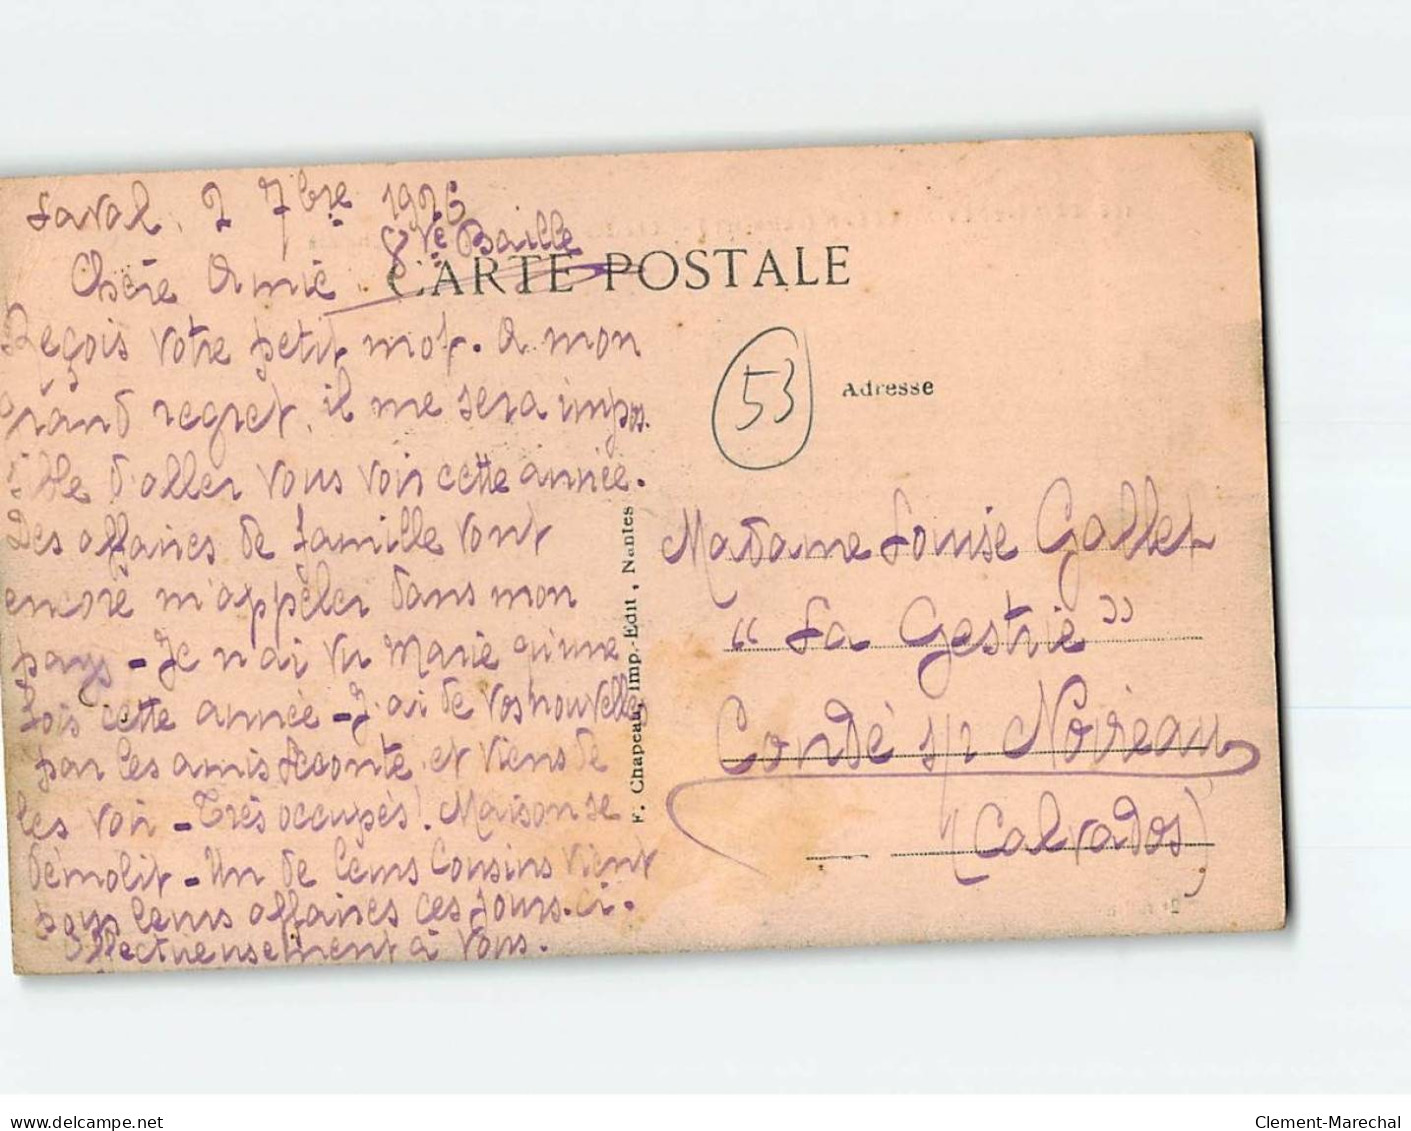 Laval, 2 7bre 1926
Vve Baille
Chère Amie
CARTE POSTALE
Reçois votre petit mot. A mon
grand regret, il me sera impos.
sible d'aller vous voir cette année.
Des affaires de famille vont
encore m'appeler dans mon
pays - Je n'ai vu Marie qu'une
fois cette année - J'ai de vos nouvelles
par les amis Leconte et viens de
les voir - Très occupés! Maison se
démolit - Un de leurs Cousins vient
pour leurs affaires ces jours-ci.
Affectueusement à Vous.
F. Chapeau, Imp.-Edit, Nantes
53
Adresse
Madame Louise Gallet
"La Gestrie"
Condé s/r Noireau
(Calvados)
www.delcampe.net
Clement-Marechal